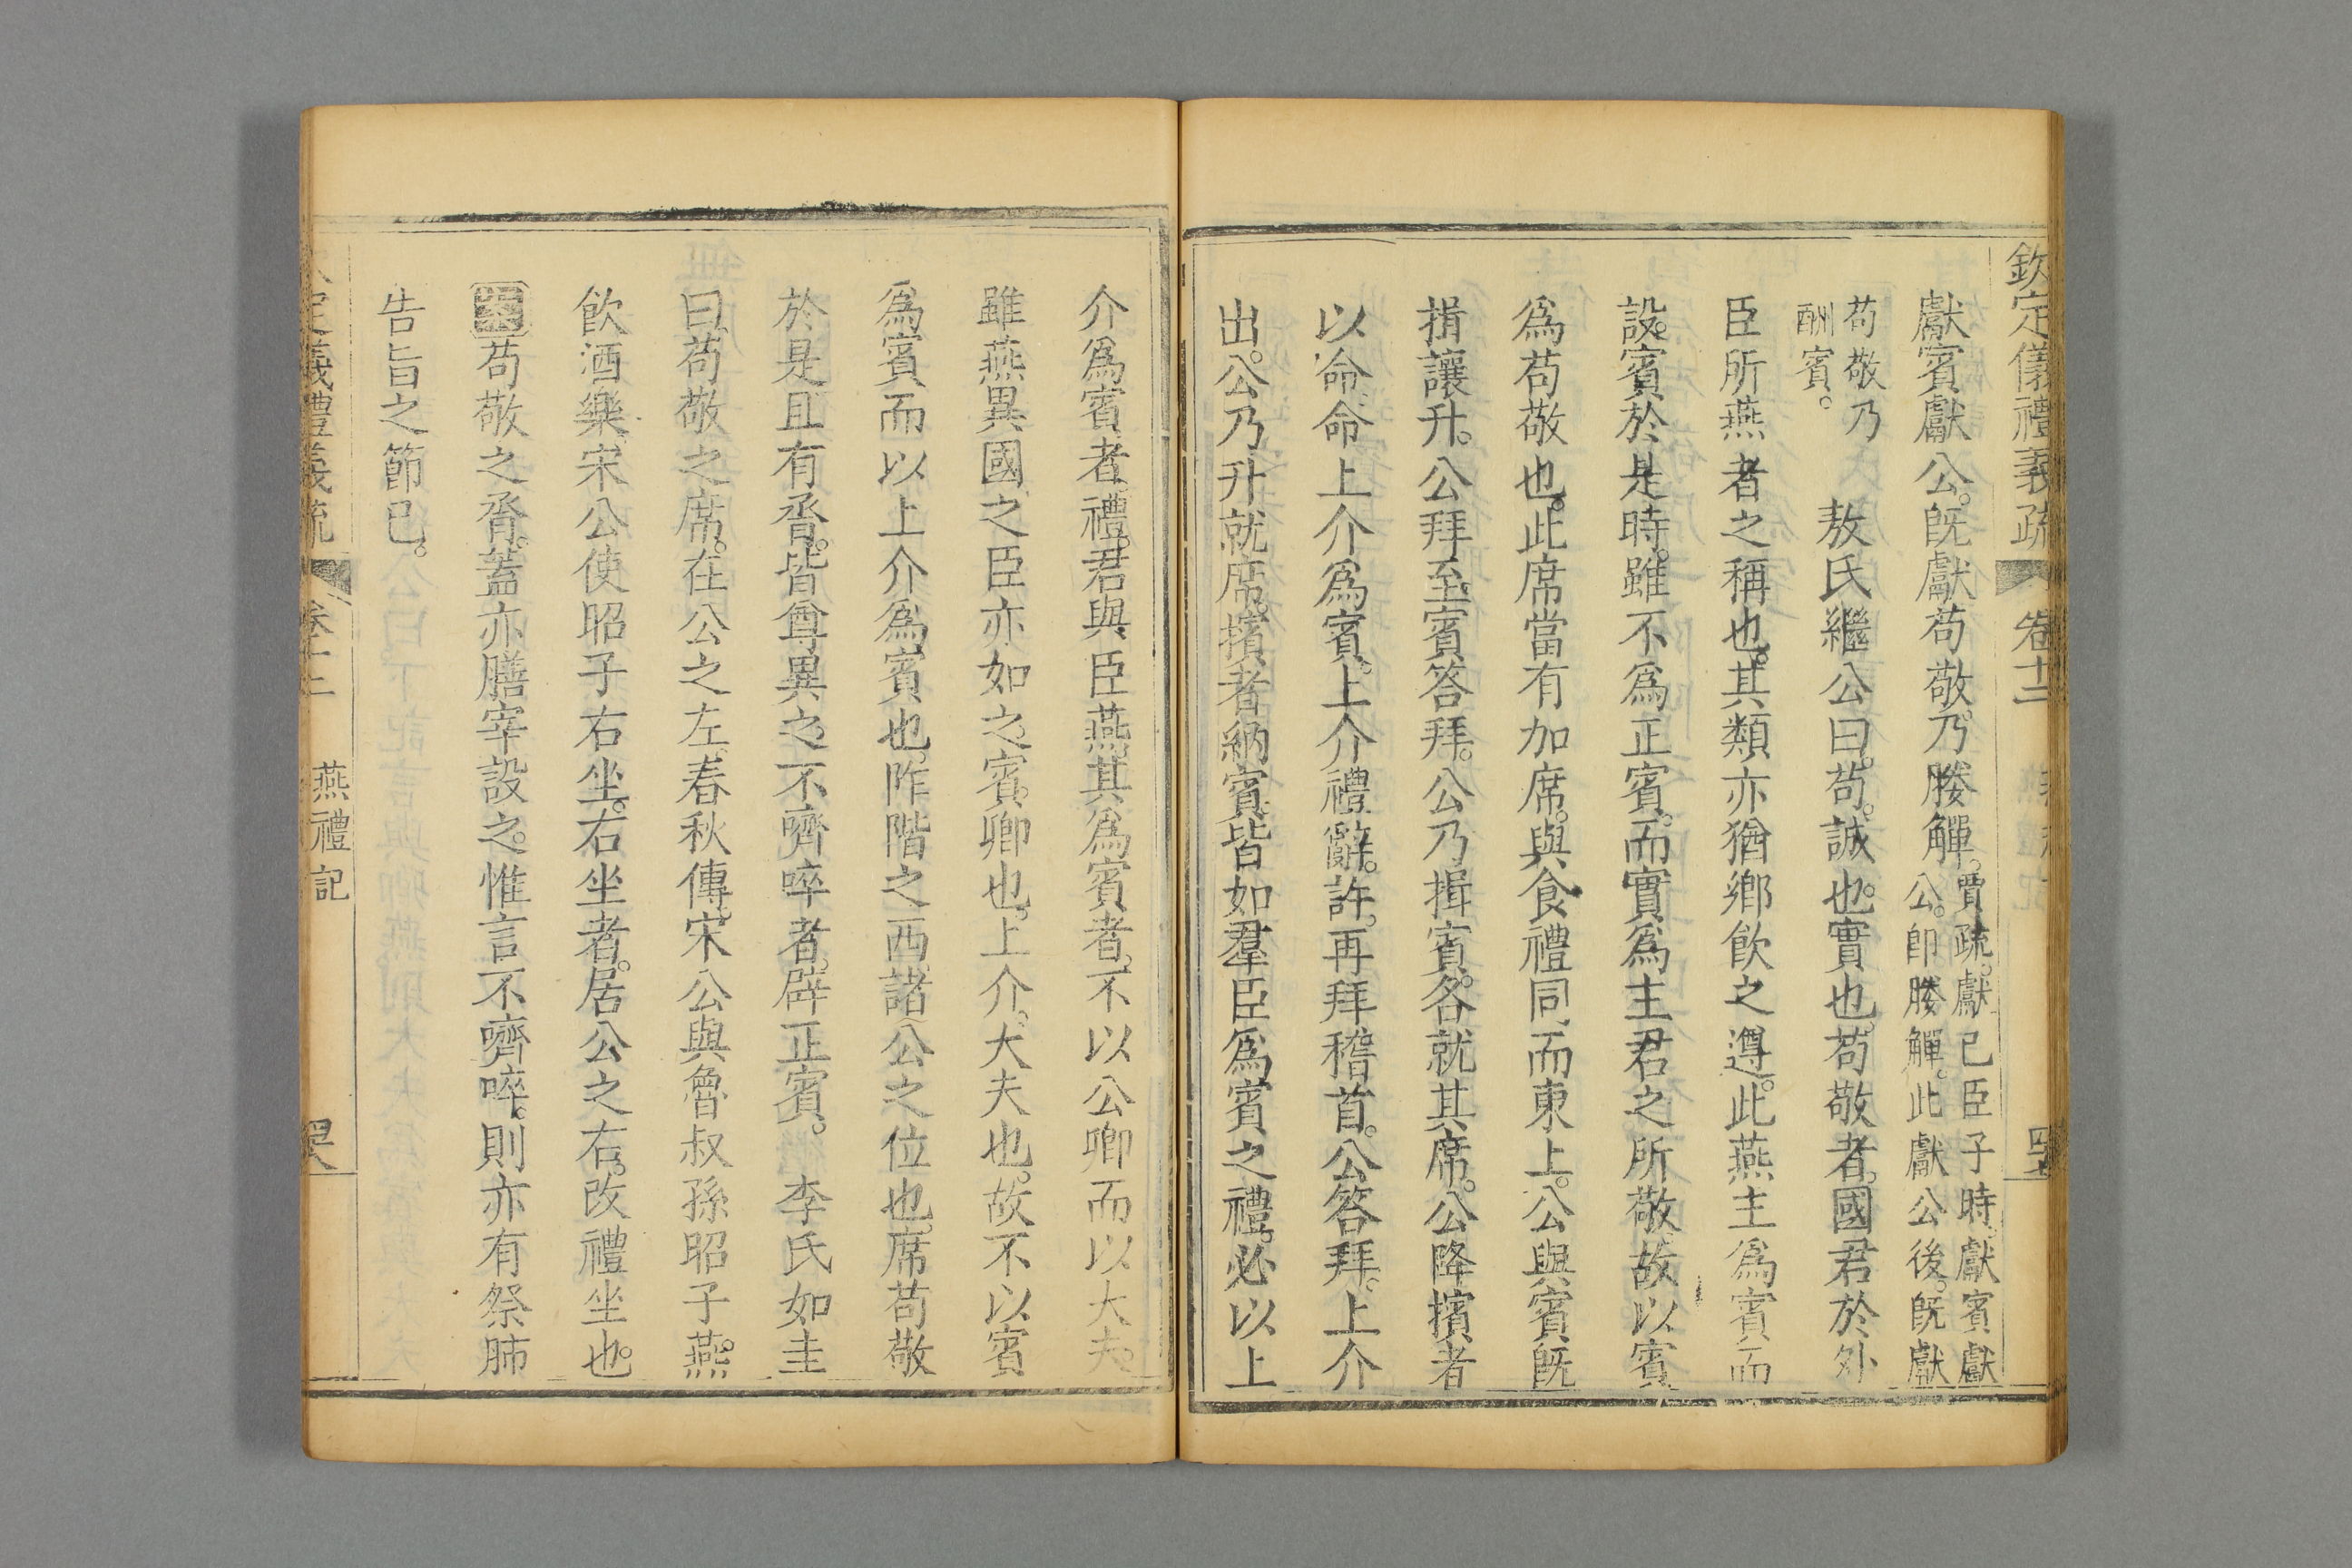 欽定儀禮義疏 卷十二
獻賓獻公。旣獻苟敬。乃媵觶。賈疏。獻已臣子時。獻賓獻
公。卽媵觶。此獻公後。旣獻
苟敬乃
酬賓。
敖氏繼公曰。苟。誠也。實也。苟敬者。國君於外
臣所燕者之稱也。其類亦猶鄉飲之遵。此燕主爲賓而
設。賓於是時。雖不爲正賓。而實爲主君之所敬。故以賓
爲苟敬也。此席當有加席。與食禮同。而東上。公與賓旣
揖讓升。公拜至。賓答拜。公乃揖賓。各就其席。公降擯者
以命命上介爲賓。上介禮辭。許。再拜稽首。公答拜。上介
出。公乃升就席。擯者納賓。皆如羣臣爲賓之禮。必以上
介爲賓者。禮。君與臣燕。其爲賓者。不以公卿而以大夫。
雖燕異國之臣亦如之。賓。卿也。上介。大夫也。故不以賓
爲賓而以上介爲賓也。阼階之西。諸公之位也。席苟敬
於是。且有脀。皆尊異之。不嚌啐者。辟正賓。 李氏如圭
曰。苟敬之席。在公之左。春秋傳。宋公與魯叔孫昭子燕。
飲酒樂。宋公使昭子右坐。右坐者。居公之右。改禮坐也。
苟敬之脀。蓋亦膳宰設之。惟言不嚌啐。則亦有祭肺
告旨之節已。
定義禮義疏 卷十二 燕禮記